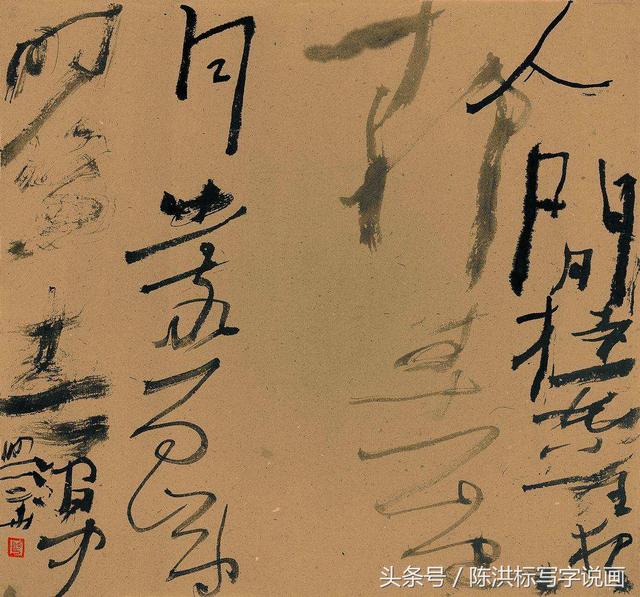 人閒桂花落夜
静春山空
月出驚山鳥
時鳴春澗中
头条号 / 陈洪标写字说画